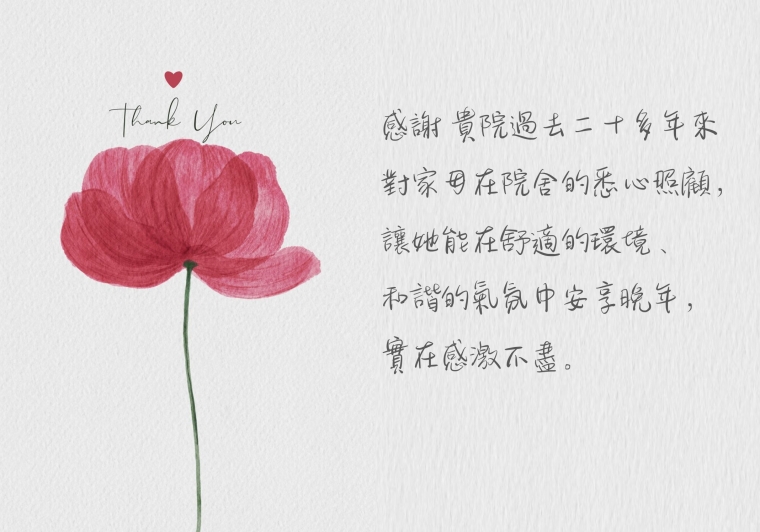 Thank You
感謝 貴院過去二十多年來
對家母在院舍的悉心照顧，
讓她能在舒適的環境、
和諧的氣氛中安享晚年，
實在感激不盡。